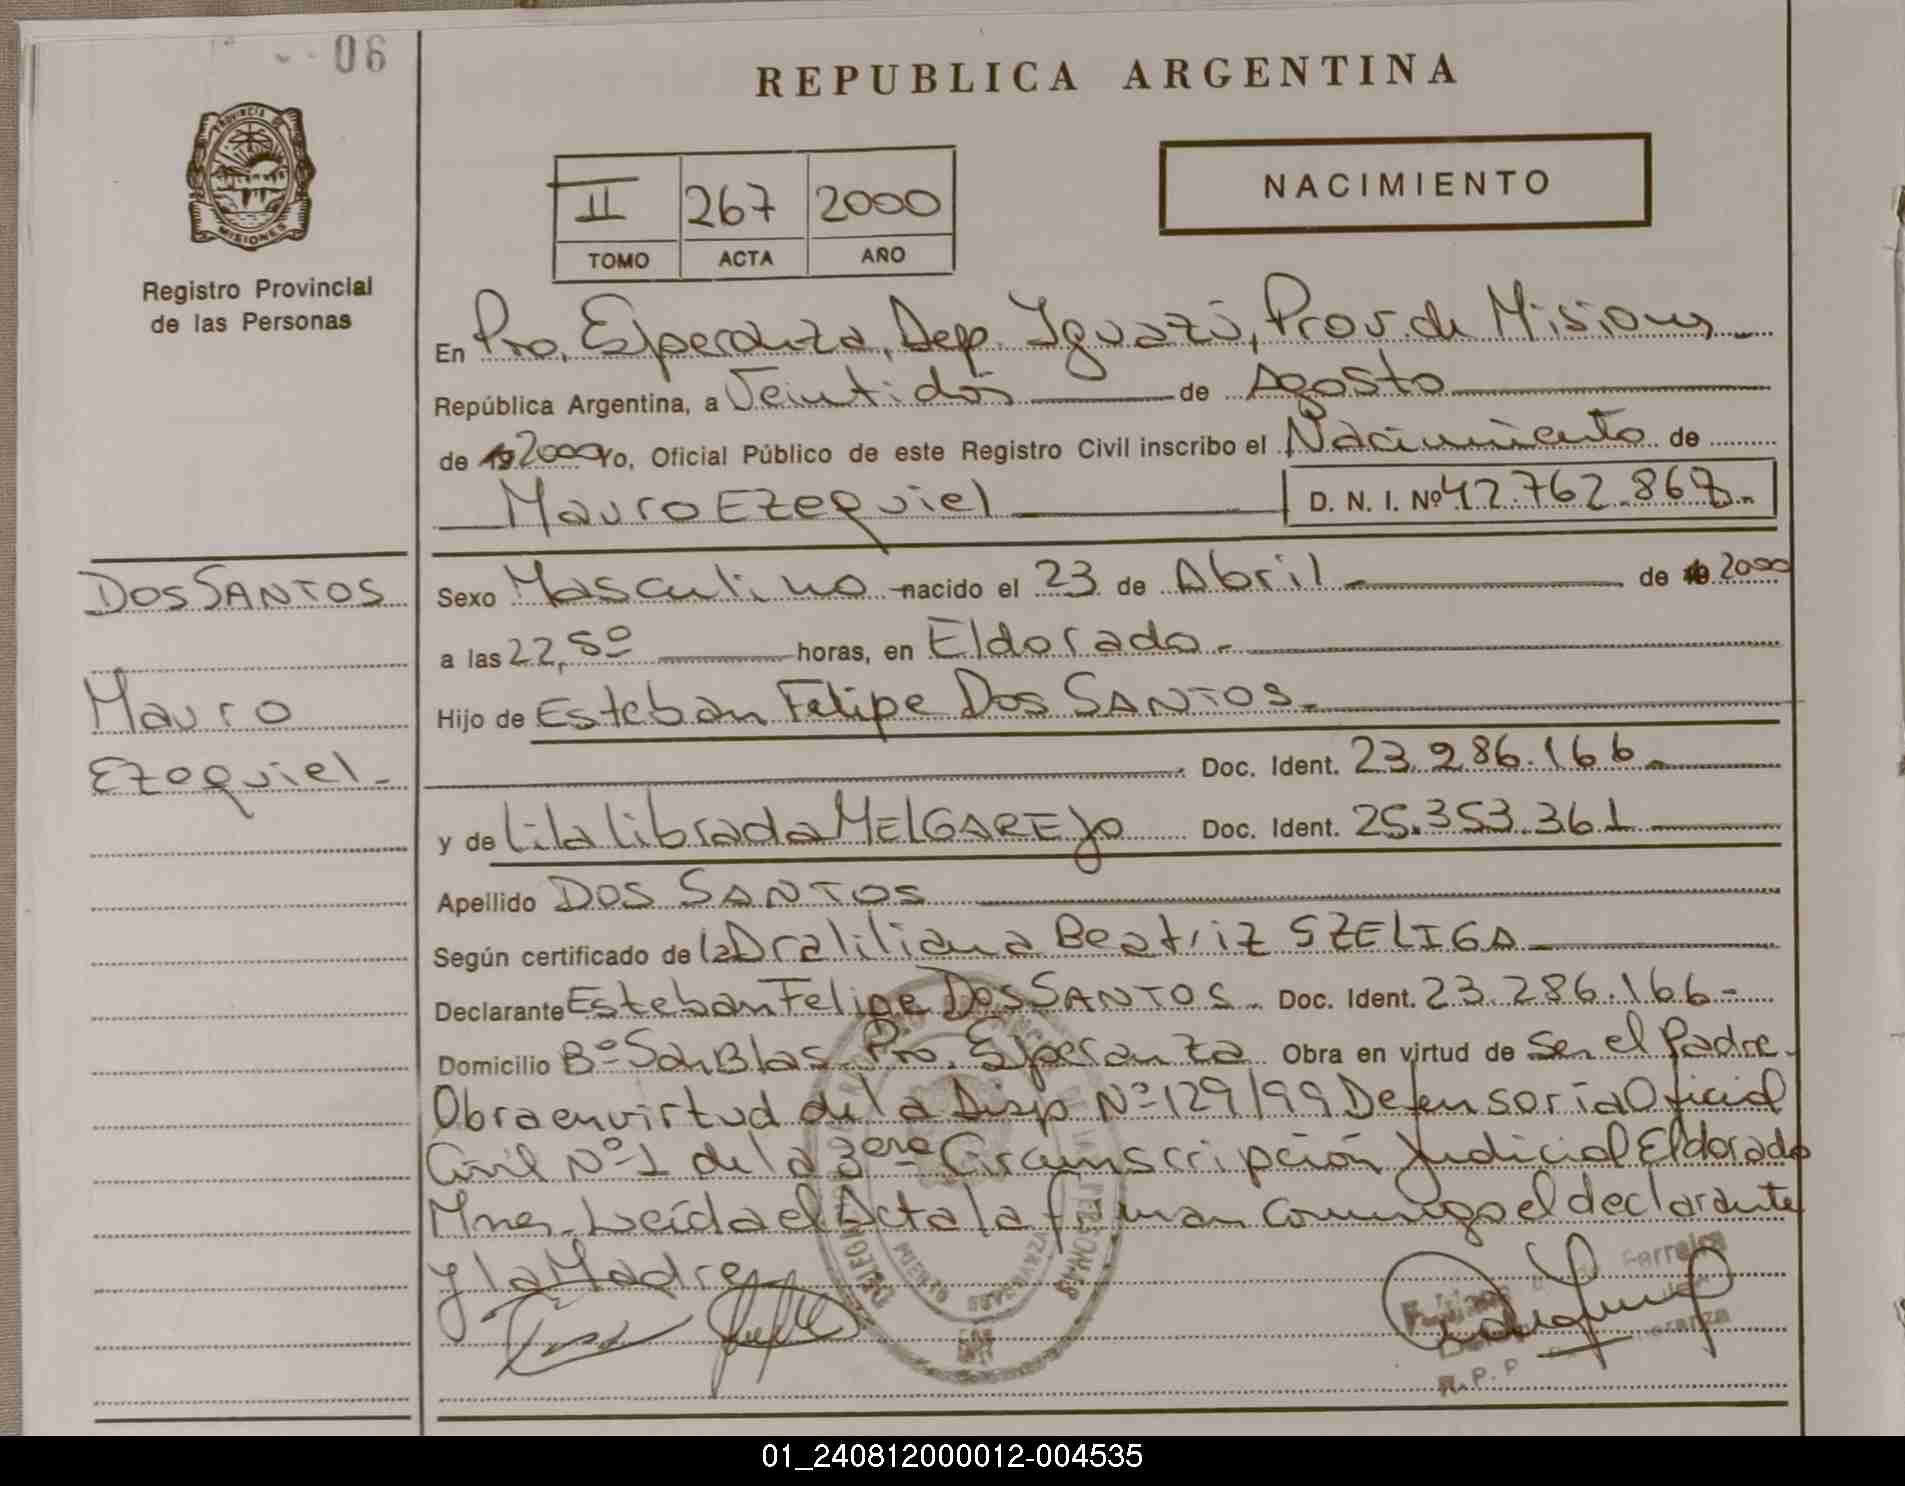 06
REPUBLICA ARGENTINA
PROVINCIA DE
MISIONES
Registro Provincial
de las Personas
II 267 2000
TOMO ACTA AÑO
NACIMIENTO
En Pto. Esperanza, Dep. Iguazú, Prov. de Misiones
República Argentina, a Veintidós de Agosto
de 192000 Yo, Oficial Público de este Registro Civil inscribo el Nacimiento de
Mauro Ezequiel D. N. I. Nº 42.762.868.-
DOS SANTOS
Mauro
Ezequiel.-
Sexo Masculino nacido el 23 de Abril.- de 19 2000
a las 22,50 horas, en Eldorado.-
Hijo de Esteban Felipe Dos SANTOS.-
Doc. Ident. 23.286.166.-
y de Lila Librada MELGAREJO Doc. Ident. 25.353.361
Apellido DOS SANTOS
Según certificado de la Dra Liliana Beatriz SZELIGA
Declarante Esteban Felipe Dos SANTOS.- Doc. Ident. 23.286.166-
Domicilio Bº San Blas Pto. Esperanza Obra en virtud de Ser el Padre.
Obra en virtud de la Disp Nº 129/99 Defensoría Oficial
Civil Nº 1 de la 3era Circunscripción Judicial Eldorado
Mnes. Leída el Acta la firman conmigo el declarante
y la Madre
Ferreira
R.P.P
01_240812000012-004535